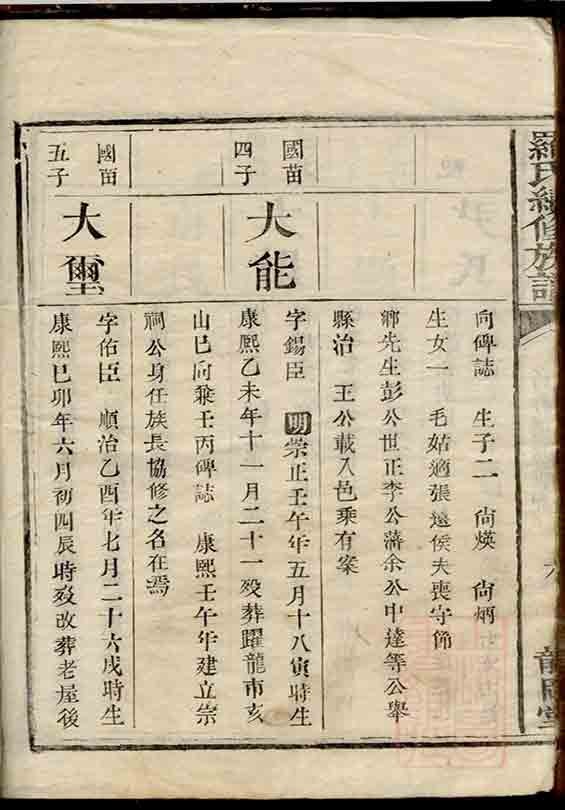 羅氏續修族譜
向碑誌　生子二　尙煐　尙炳
生女一　毛姑適張遠侯夫喪守節
鄉先生彭公世正李公蔣余公中達等公舉
縣治　王公載入邑乘有案
國苗
四子
大能
字錫臣　明崇正壬午年五月十八寅時生
康熙乙未年十一月二十一歿葬躍龍市亥
山巳向兼壬丙碑誌　康熙壬午年建立宗
祠公身任族長協修之名在焉
國苗
五子
大璽
字佑臣　順治乙酉年七月二十六戌時生
康熙己卯年六月初四辰時歿改葬老屋後